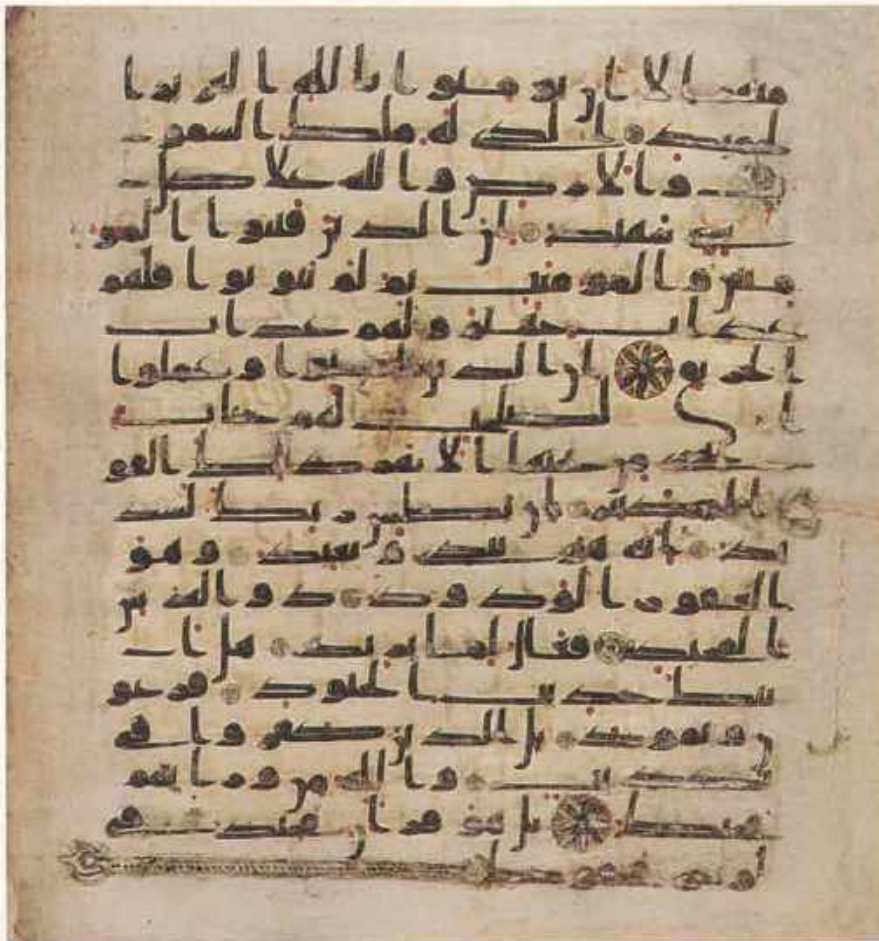 منهم الا ان يومنوا بالله العزيز ا
لحميد الذى له ملك السمو
ت والارض والله على كل
شى شهيد ان الذين فتنوا المو
منين والمومنت ثم لم يتوبوا فلهم
عذاب جهنم ولهم عذاب
الحريق ان الذين امنوا وعملوا
ا لصلحت لهم جنت
تجرى من تحتها الانهر ذلك الفو
ز الكبير ان بطش ربك لشد
يد انه هو يبدى ويعيد وهو
الغفور الودود ذو العرش
المجيد فعال لما يريد هل ا
تيك حديث الجنود فرعو
ن وثمود بل الذين كفروا فى
تكذيب والله من ورايهم
محيط بل هو قران مجيد فى
لوح محفوظ